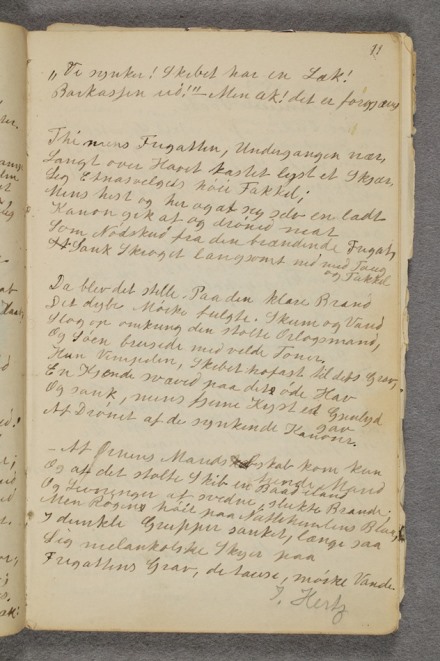 11
"Vi synker! Skibet har en Læk!
Barkassen ud!" - Men ak! det er forgjæves
Thi mens Fregatten, Undergangen nær,
Langt over Havet kastet lyst et Skjær,
Lig høie Fakkel;
Mens hist og her agat sig selv en ladt
Kanon gik af og drøned mat
Som Nødskud fra den brændende Fregat,
Sank Skroget langsomt ned med Taug
og Takkel
Da blev det stille. Paa den klare Brand
Det dybe Mörke fulgte. Skum og Vand
Slog op omkring den stolte Orlogsmand,
Og Söen brusede med velde Toner.
Kun Vimpelen, Skibet trofast til dets Grav,
En Kjende svæved paa det øde Hav
Og sank, mens fjerne Kyst et Genlyd
gav
Af Drönet af de synkende Kanoner.
- Af Ørnens Mandskab kom kun
tvende Mand
Og af det stolte Skib en Baad iland
Og Levninger af svedne, slukte Brande;
Men Røgens høit paa Nattehimlens Blaa,
I dunkle Grupper sanket, længe saa
Lig melankolske Skyer paa
Fregattens Grav, de tause, mörke Vande.
Hertz